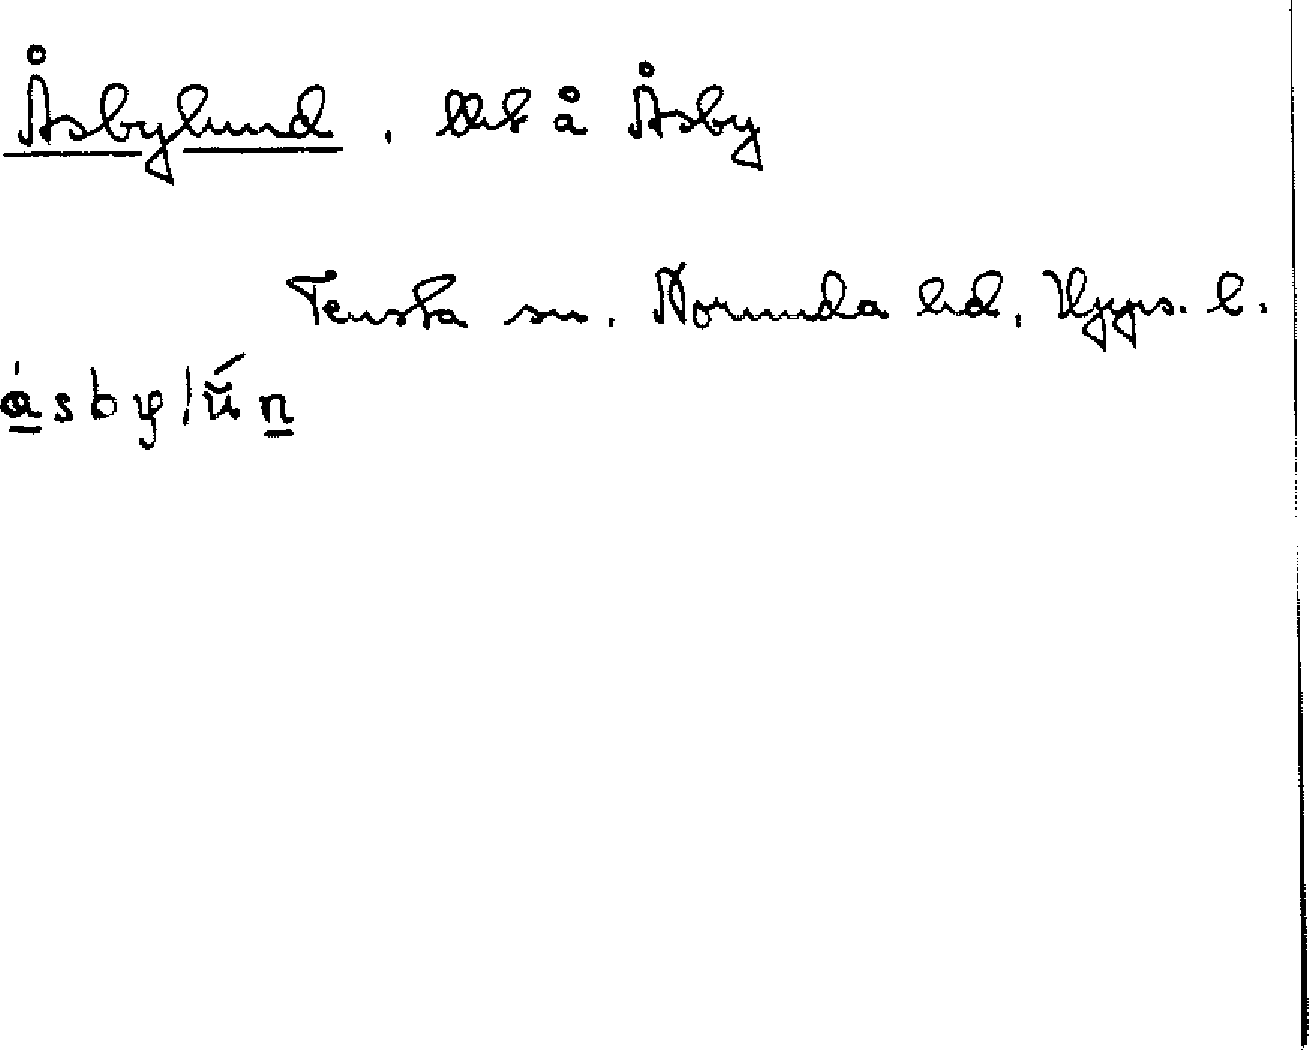 Åsbylund. Ut å Åsby
Tensta sn. Norunda hd. Upps. l.
åsbylún